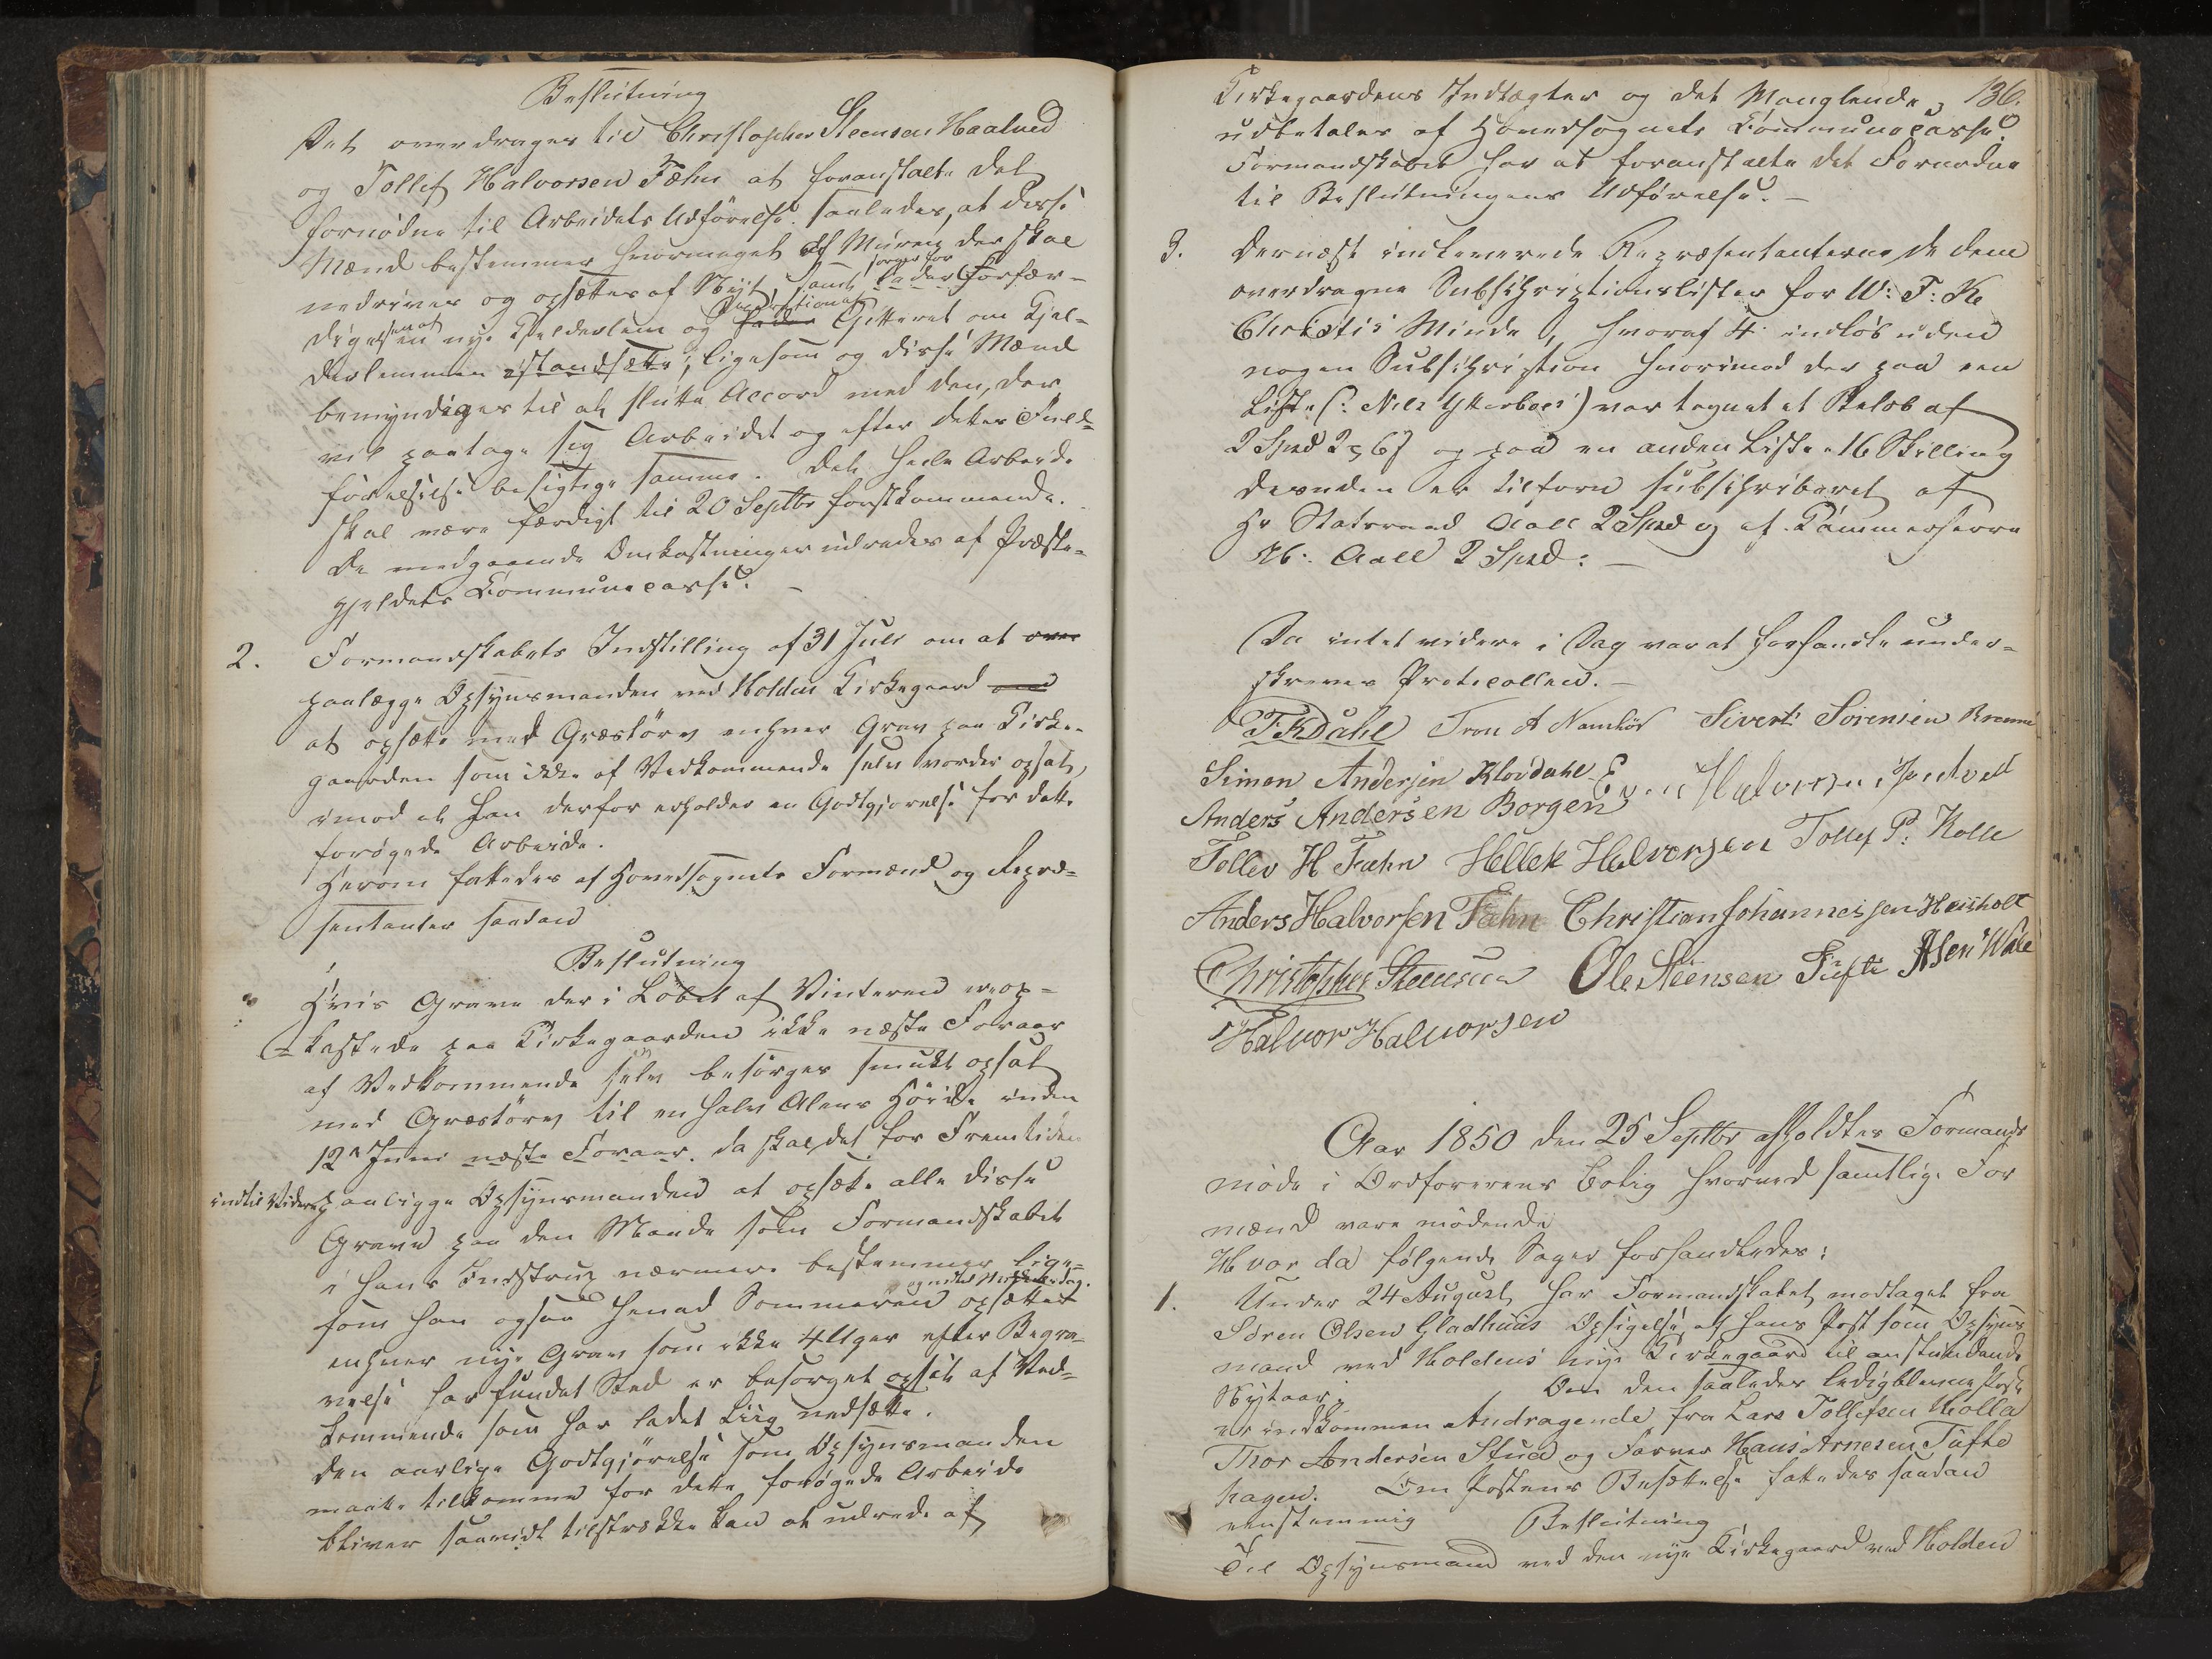 Beslutning
Det overdrages til Christopher Steensen Haatved
og Tollef Halvorsen Fæhn at foranstalte det
fornødne til Arbeidets Udførelse saaledes, at disse
Mænd bestemmer hvormeget af Muren der skal
nedrives og opsættes af Nyt, samt sørger for lader Forfær-
digelsen af nye Kjelderlem og Gitteret om Kjel-
derlemmen istandsætte; ligesom og disse Mænd
bemyndiges til at slutte Accord med den, der
vil paatage sig Arbeidet og efter dettes Fuld-
førelse besigtige samme. Det hele Arbeide
skal være færdigt til 20 Septbr førstkommende.
De medgaaende Omkostninger udredes af Præste-
gjeldets Kommunecasse. —
2. Formandskabets Indstilling af 31 Juli om at over
paalægge Opsynsmanden ved Holden Kirkegaard
at opsætte med Græstørv enhver Grav paa Kirke-
gaarden som ikke af Vedkommende selv vorder opsat,
imod at han derfor erholder en Godtgjørelse for dette
forøgede Arbeide.
Herom fattedes af Hovedsognets Formænd og Repræ-
sentanter saadan
Beslutning
Hvis Grave der i Løbet af Vinteren ere op-
kastede paa Kirkegaarden ikke næste Foraar
af Vedkommende selv besørges smukt opsat
med Græstørv til en halv Alens Høide inden
12 Juni næste Foraar, da skal det for Fremtiden
indtil Videre paaligge Opsynsmanden at opsætte alle disse
Grave paa den Maade som Formandskabet
i hans Instrux nærmere bestemmer lige-
som han ogsaa henad Sommeren opsætter
enhver nye Grav som ikke 4 Uger efter Begra-
velse har fundet Sted er besørget opsat af Ved-
kommende som har ladet Liig nedsætte.
Den aarlige Godtgjørelse som Opsynsmanden
maatte tilkomme for dette forøgede Arbeide
bliver saavidt tilstrække kan at udrede af
136.
Kirkegaardens Indtægter og det Manglende
udbetales af Hovedsognets Kommunecasse.
Formandskabet har at foranstalte det Fornødne
til Beslutningens Udførelse. —
3. Dernæst indleverede Repræsentanterne de dem
overdragne Subscriptionslister for W: F: K
Christis Minde, hvoraf 4 indløb uden
nogen Subscription hvorimod der paa een
Liste (: Nils Ytterboes) var tegnet et Beløb af
2 Spd og paa en anden Liste 16 Skilling
desuden er tilforn subscriberet af
Hr Statsraad Aall 2 Spd og af Kammerherre
H: Aall 2 Spd: —
Da intet videre i Dag var at forhandle under-
skreves Protocollen. —
T. K Dahl Tron A Namløs Siverti Sörensen
Simon Andersen Klovdahl Even Halvorsen
Anders Andersen Borgen
Tollev H Fæhn Hellek Halvorsen Tollef P: Kolle
Anders Halvorsen Fæhn Christian Johannessen Heisholt
Christopher Steensen Ole Steensen Tufte
Halvor Halvorsen
Aar 1850 den 25 Septbr afholdtes Formands
møde i Ordførerens Bolig hvorved samtlige For
mænd vare mødende
Hvor da følgende Sager forhandledes:
1. Under 24 August har Formandskabet modtaget fra
Søren Olsen Gladhuus Opsigelse af hans Post som Opsyns
mand ved Holdens nye Kirkegaard til anstundende
Nytaar. Om den saaledes ledigblevne Post
er indkommen Andragende fra Lars Tollefsen Kolla
Thor Andersen Stued og Farver Hans Arnesen Tufte
hagen. Om Postens Besættelse fattedes saadan
eenstemmig Beslutning
Til Opsynsmand ved den nye Kirkegaard ved Holden